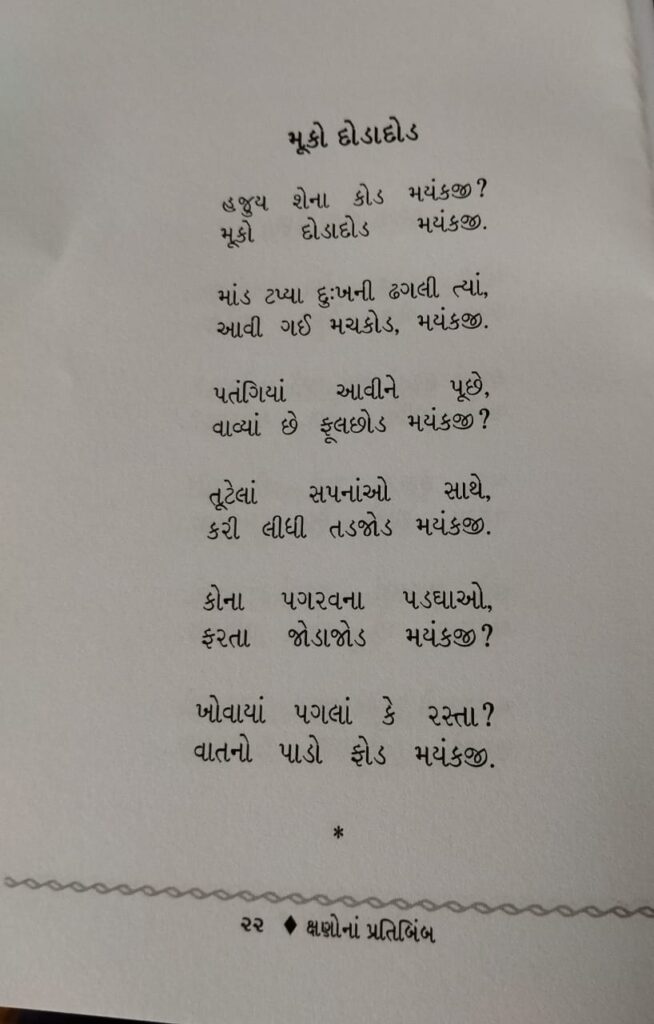 મૂકો દોડાદોડ
હજુય શેના કોડ મયંકજી?
મૂકો દોડાદોડ મયંકજી.
માંડ ટપ્યા દુઃખની ઢગલી ત્યાં,
આવી ગઈ મચકોડ, મયંકજી.
પતંગિયાં આવીને પૂછે,
વાવ્યાં છે ફૂલછોડ મયંકજી?
તૂટેલાં સપનાંઓ સાથે,
કરી લીધી તડજોડ મયંકજી.
કોના પગરવના પડઘાઓ,
ફરતા જોડાજોડ મયંકજી?
ખોવાયાં પગલાં કે રસ્તા?
વાતનો પાડો ફોડ મયંકજી.
*
૨૨ ♦ ક્ષણોનાં પ્રતિબિંબ